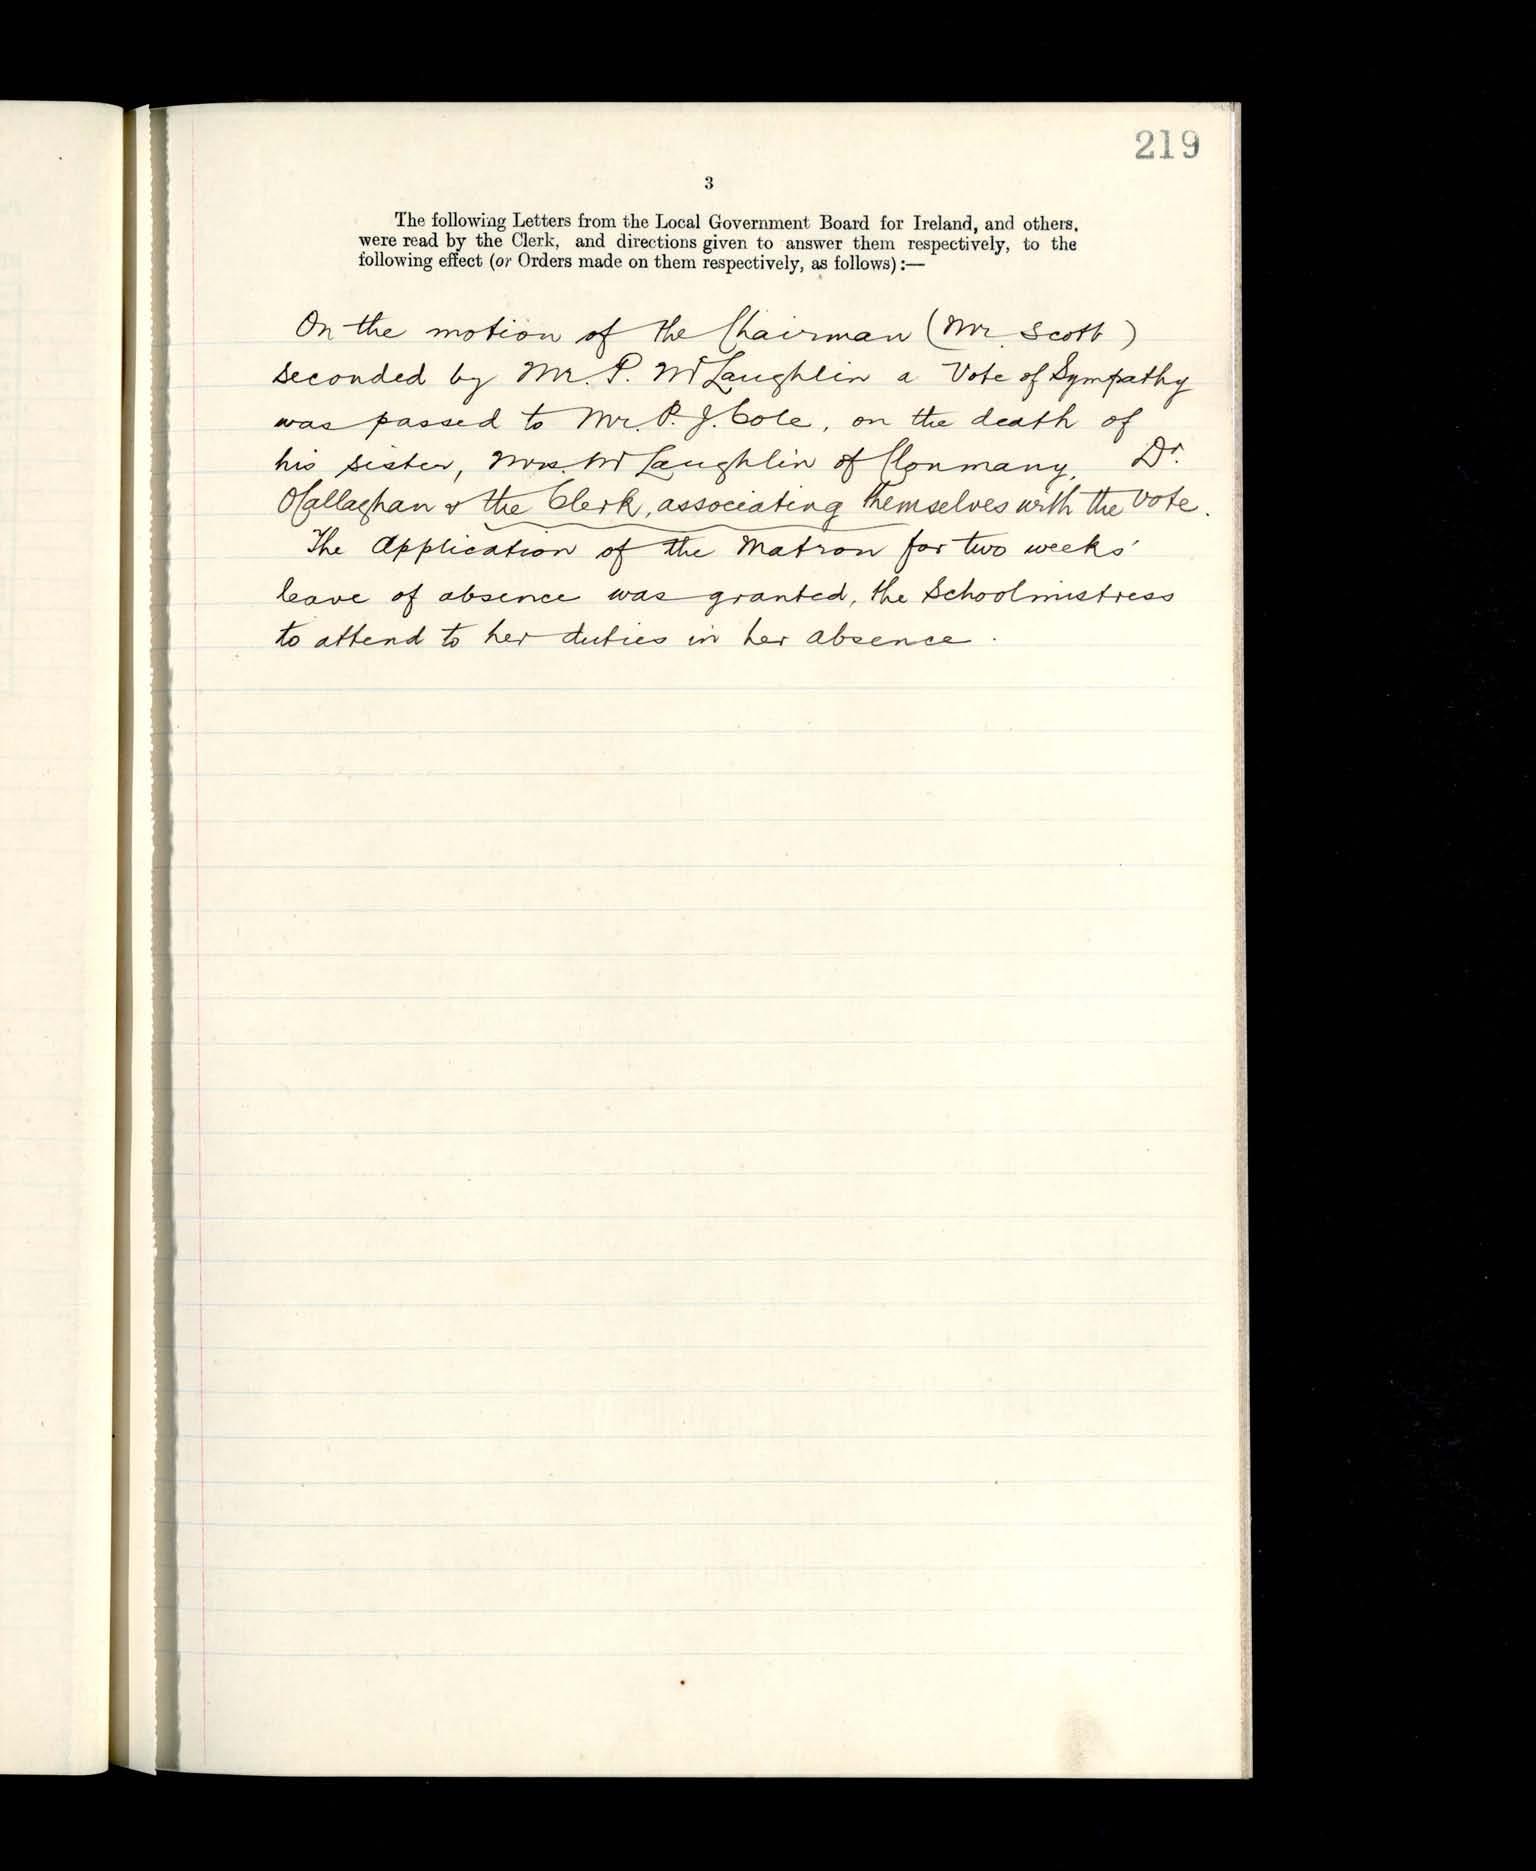 219
3
The following Letters from the Local Government Board for Ireland, and others,
were read by the Clerk, and directions given to answer them respectively, to the
following effect (or Orders made on them respectively, as follows):—
On the motion of the Chairman (Mr. Scott)
seconded by Mr. P. McLaughlin a Vote of Sympathy
was passed to Mr. P. J. Cole, on the death of
his sister, Mrs. McLaughlin of Clonmany, Dr.
O'Callaghan & the Clerk, associating themselves with the vote.
The Application of the Matron for two weeks'
leave of absence was granted, the Schoolmistress
to attend to her duties in her absence.